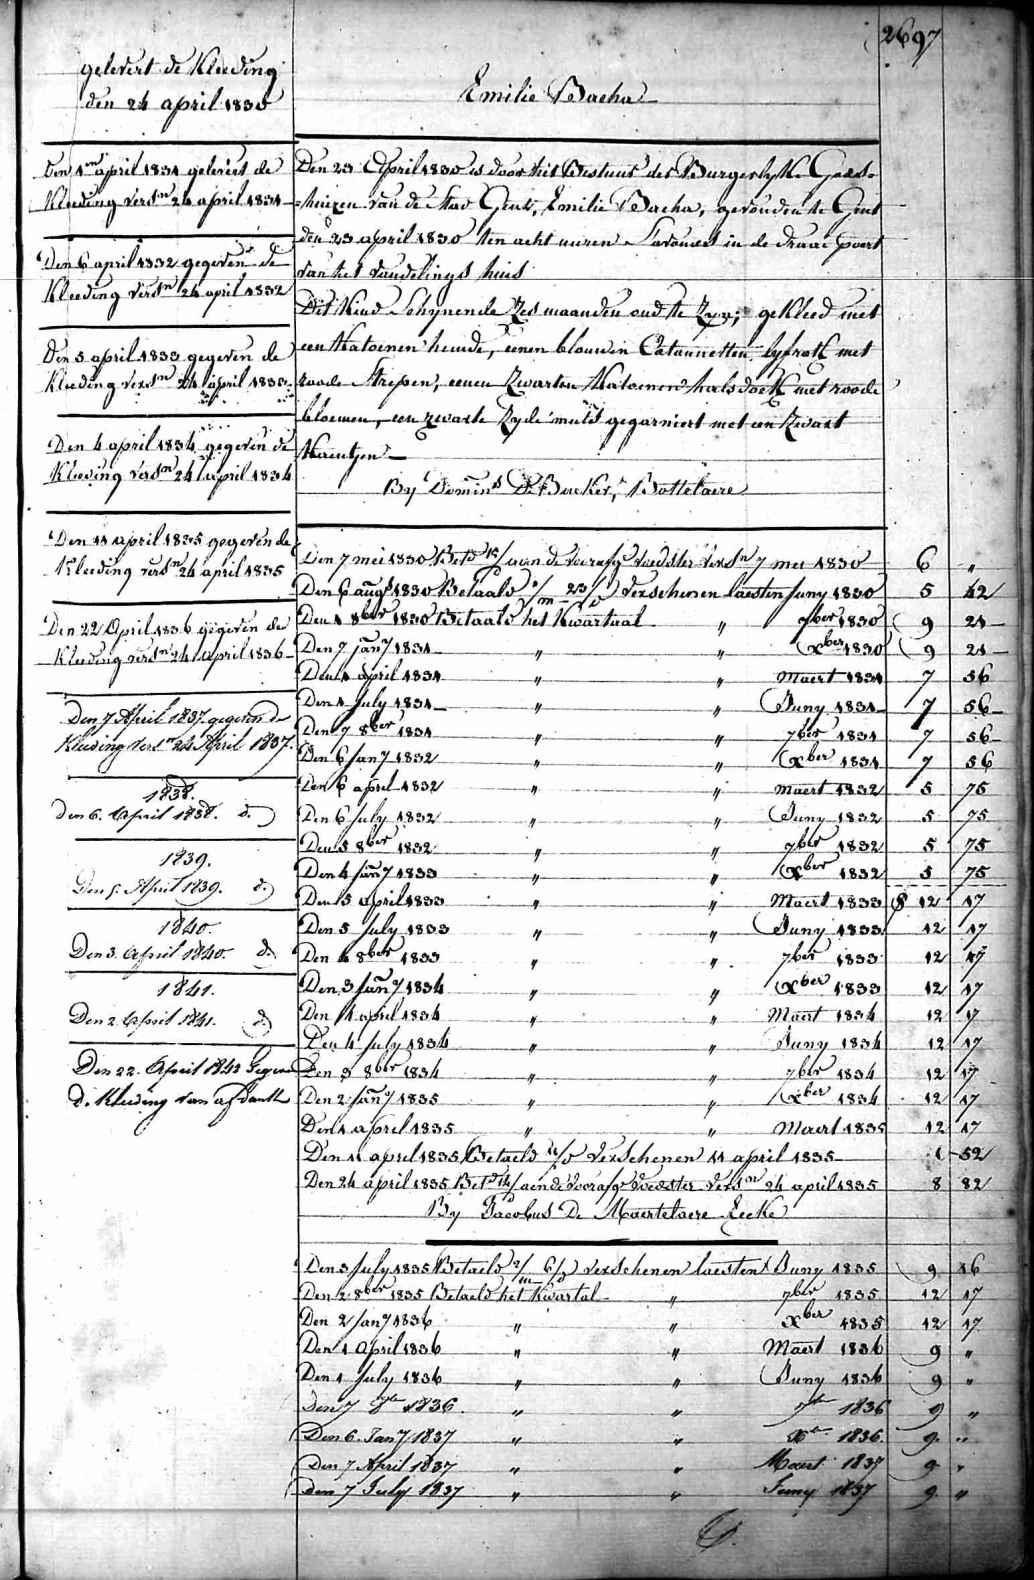 2697
gelevert de Kleeding
den 24 april 1830
Emilie Bacha
Den 1en april 1831 gelevert de
Kleeding versn 24 april 1831
Den 6 april 1832 gegeven de
Kleeding versn 24 april 1832
Den 5 april 1833 gegeven de
Kleeding versn 24 april 1833
Den 4 april 1834 gegeven de
Kleeding versn 24 april 1834
Den 11 april 1835 gegeven de
Kleeding versn 24 april 1835
Den 22 April 1836 gegeven de
Kleeding versn 24 april 1836
Den 7 April 1837 gegeven de
Kleeding versn 24 April 1837.
1838.
den 6. April 1838. d.
1839.
Den 5. April 1839. d.
1840.
Den 3. April 1840. d.
1841.
Den 2. April 1841. d.
Den 22. April 1842 Gegeven
de Kleeding van afdank
Den 23 April 1830 is door het Bestuur der Burgerlyke Gods-
huizen van de Stad Gent, Emilie Bacha, gevonden te Gent
den 23 april 1830 ten acht uuren s'avonds in de draai poort
van het vondelings huis
Dit Kind schynende zes maanden oud te zyn; gekleed met
een Katoenen hemde, eenen blouwen Catunnetten lyfrok met
roode strepen, eenen zwarten Katoenen halsdoek met roode
bloemen, een zwarte zyde muts gegarniert met een zwart
Kantjen
By Domins De Bucker, Bottelaere
Den 7 mei 1830 Betd aan de voorafge voedster versn 7 mei 1830 6 "
Den 6 augt 1830 Betaald 1/m 23/d verschenen laesten Juny 1830 5 42
Den 1 8ber 1830 Betaald het Kwartaal " 7ber 1830 9 21
Den 7 Jany 1831 " " Xber 1830 9 21
Den 1 april 1831 " " Maert 1831 7 56
Den 1 July 1831 " " Juny 1831 7 56
Den 7 8ber 1831 " " 7ber 1831 7 56
Den 6 Jany 1832 " " Xber 1831 7 56
Den 6 april 1832 " " maert 1832 5 75
Den 6 July 1832 " " Juny 1832 5 75
Den 5 8ber 1832 " " 7ber 1832 5 75
Den 4 Jany 1833 " " Xber 1832 5 75
Den 5 april 1833 " " Maert 1833 12 17
Den 5 July 1833 " " Juny 1833 12 17
Den 4 8ber 1833 " " 7ber 1833 12 17
Den 3 Jany 1834 " " Xber 1833 12 17
Den 4 april 1834 " " Maert 1834 12 17
Den 4 July 1834 " " Juny 1834 12 17
Den 3 8ber 1834 " " 7ber 1834 12 17
Den 2 Jany 1835 " " Xber 1834 12 17
Den 1 april 1835 " " Maert 1835 12 17
Den 11 april 1835 Betaeld 11/d verschenen 11 april 1835 1 52
Den 24 april 1835 Betd aen de voorafge voedster versn 24 april 1835 8 82
By Jacobus De Maertelaere Eecke
Den 3 July 1835 Betaeld 2/m 6/d verschenen laesten Juny 1835 9 16
Den 2 8ber 1835 Betaeld het Kwartal " 7ber 1835 12 17
Den 2 Jany 1836 " " Xber 1835 12 17
Den 1 April 1836 " " Maert 1836 9 "
Den 1 July 1836 " " Juny 1836 9 "
Den 7 8re 1836 " " 7re 1836 9 "
Den 6. Jany 1837 " " Xre 1836. 9. "
Den 7 April 1837 " " Maert 1837 9 "
Den 7 July 1837 " " Juny 1837 9 "